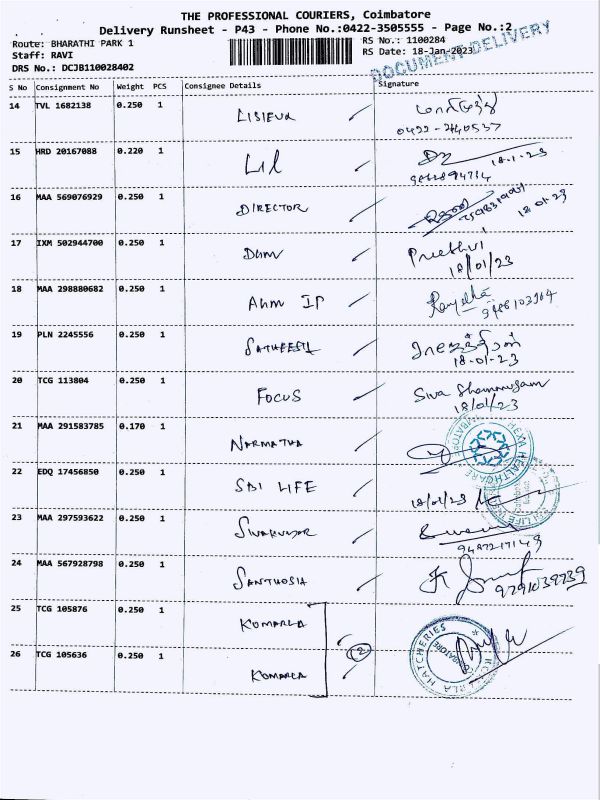 THE PROFESSIONAL COURIERS, Coimbatore
Delivery Runsheet - P43 - Phone No.:0422-3505555 - Page No.:2
Route: BHARATHI PARK 1 RS No.: 1100284
Staff: RAVI RS Date: 18-Jan-2023
DRS No.: DCJB110028402
DOCUMENT DELIVERY
S No Consignment No Weight PCS Consignee Details Signature
14 TVL 1682138 0.250 1 LISIEUX
0422-2440537
15 HRD 20167088 0.220 1 LIL 18-1-23
16 MAA 569076929 0.250 1 DIRECTOR 18.01.23
17 IXM 502944700 0.250 1 DHM Preethvi
18/01/23
18 MAA 298880682 0.250 1 AHM IP
19 PLN 2245556 0.250 1 SATHEESH
18-01-23
20 TCG 113804 0.250 1 FOCUS Siva Shanmugam
18/01/23
21 MAA 291583785 0.170 1 NARMATHA
HEXA HEALTHCARE
22 EDQ 17456850 0.250 1 SBI LIFE 18/01/23
23 MAA 297593622 0.250 1 SIVAKUMAR
24 MAA 567928798 0.250 1 SANTHOSH
25 TCG 105876 0.250 1 KOMARLA
2
26 TCG 105636 0.250 1 KOMARLA
KOMARLA HATCHERIES
COIMBATORE